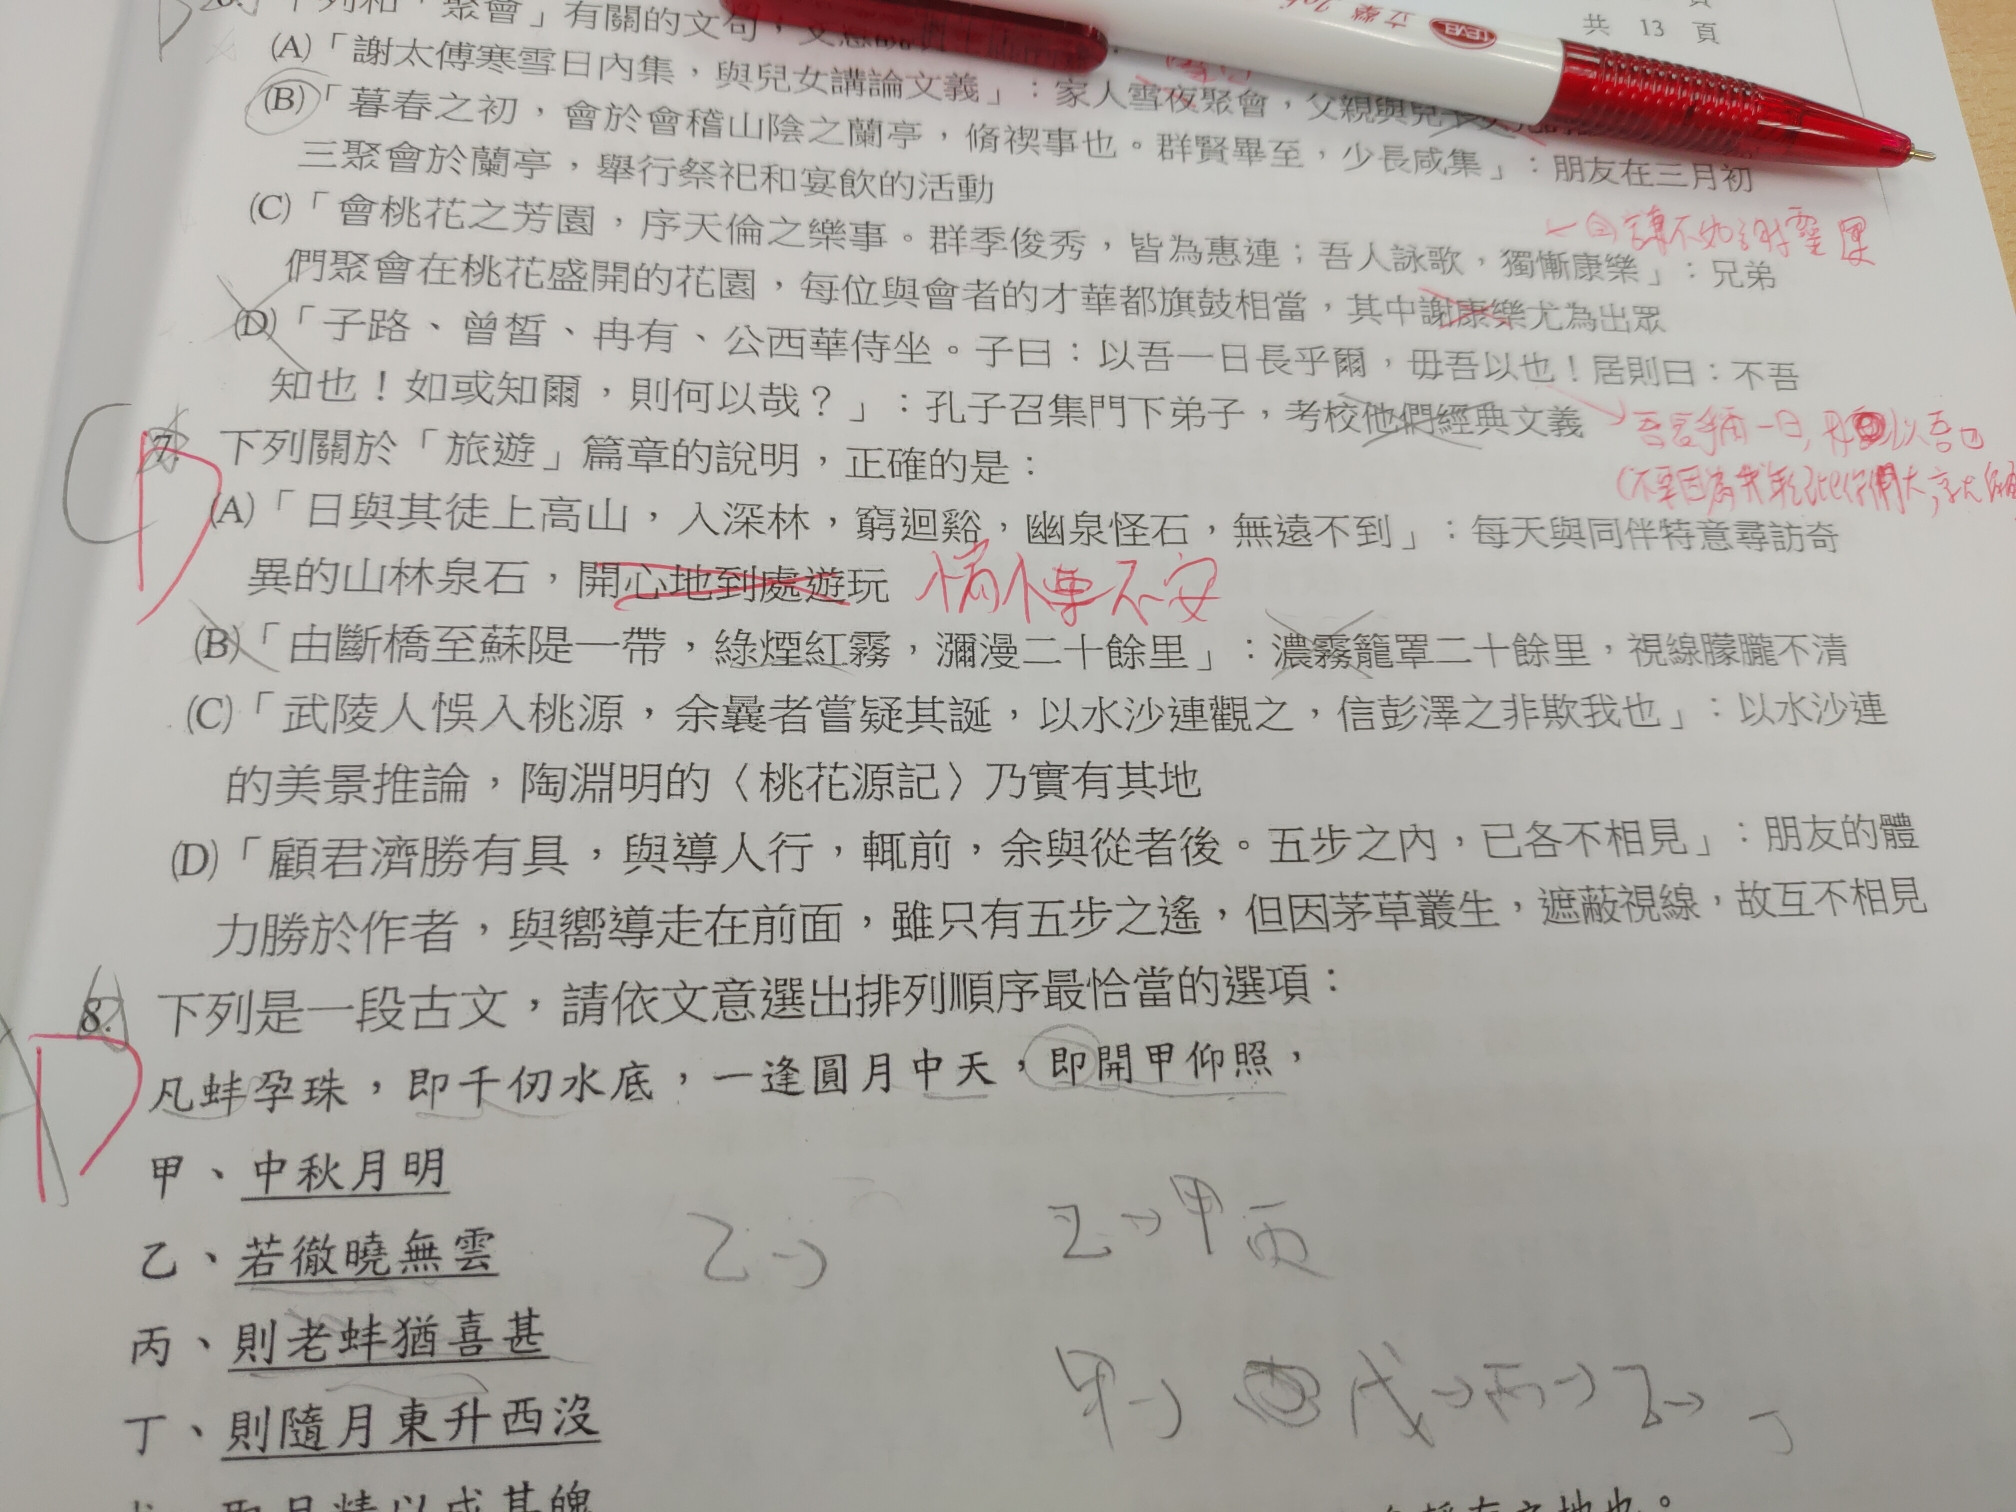 共 13 頁
下列和「聚會」有關的文句，
(A)「謝太傅寒雪日內集，與兒女講論文義」：家人雪夜聚會，父親與兒
(B)「暮春之初，會於會稽山陰之蘭亭，脩禊事也。群賢畢至，少長咸集」：朋友在三月初
三聚會於蘭亭，舉行祭祀和宴飲的活動
(C)「會桃花之芳園，序天倫之樂事。群季俊秀，皆為惠連；吾人詠歌，獨慚康樂」：兄弟
們聚會在桃花盛開的花園，每位與會者的才華都旗鼓相當，其中謝康樂尤為出眾
(D)「子路、曾皙、冉有、公西華侍坐。子曰：以吾一日長乎爾，毋吾以也！居則曰：不吾
知也！如或知爾，則何以哉？」：孔子召集門下弟子，考校他們經典文義
C
D
7. 下列關於「旅遊」篇章的說明，正確的是：
(A)「日與其徒上高山，入深林，窮迴谿，幽泉怪石，無遠不到」：每天與同伴特意尋訪奇
異的山林泉石，開心地到處遊玩 惴慄不安
(B)「由斷橋至蘇隄一帶，綠煙紅霧，瀰漫二十餘里」：濃霧籠罩二十餘里，視線朦朧不清
(C)「武陵人悞入桃源，余曩者嘗疑其誕，以水沙連觀之，信彭澤之非欺我也」：以水沙連
的美景推論，陶淵明的〈桃花源記〉乃實有其地
(D)「顧君濟勝有具，與導人行，輒前，余與從者後。五步之內，已各不相見」：朋友的體
力勝於作者，與嚮導走在前面，雖只有五步之遙，但因茅草叢生，遮蔽視線，故互不相見
D
8. 下列是一段古文，請依文意選出排列順序最恰當的選項：
凡蚌孕珠，即千仞水底，一逢圓月中天，即開甲仰照，
甲、中秋月明
乙、若徹曉無雲
乙→
乙→甲丙
丙、則老蚌猶喜甚
甲→戊→丙→乙→丁
丁、則隨月東升西沒
戊、取月精以成其魄